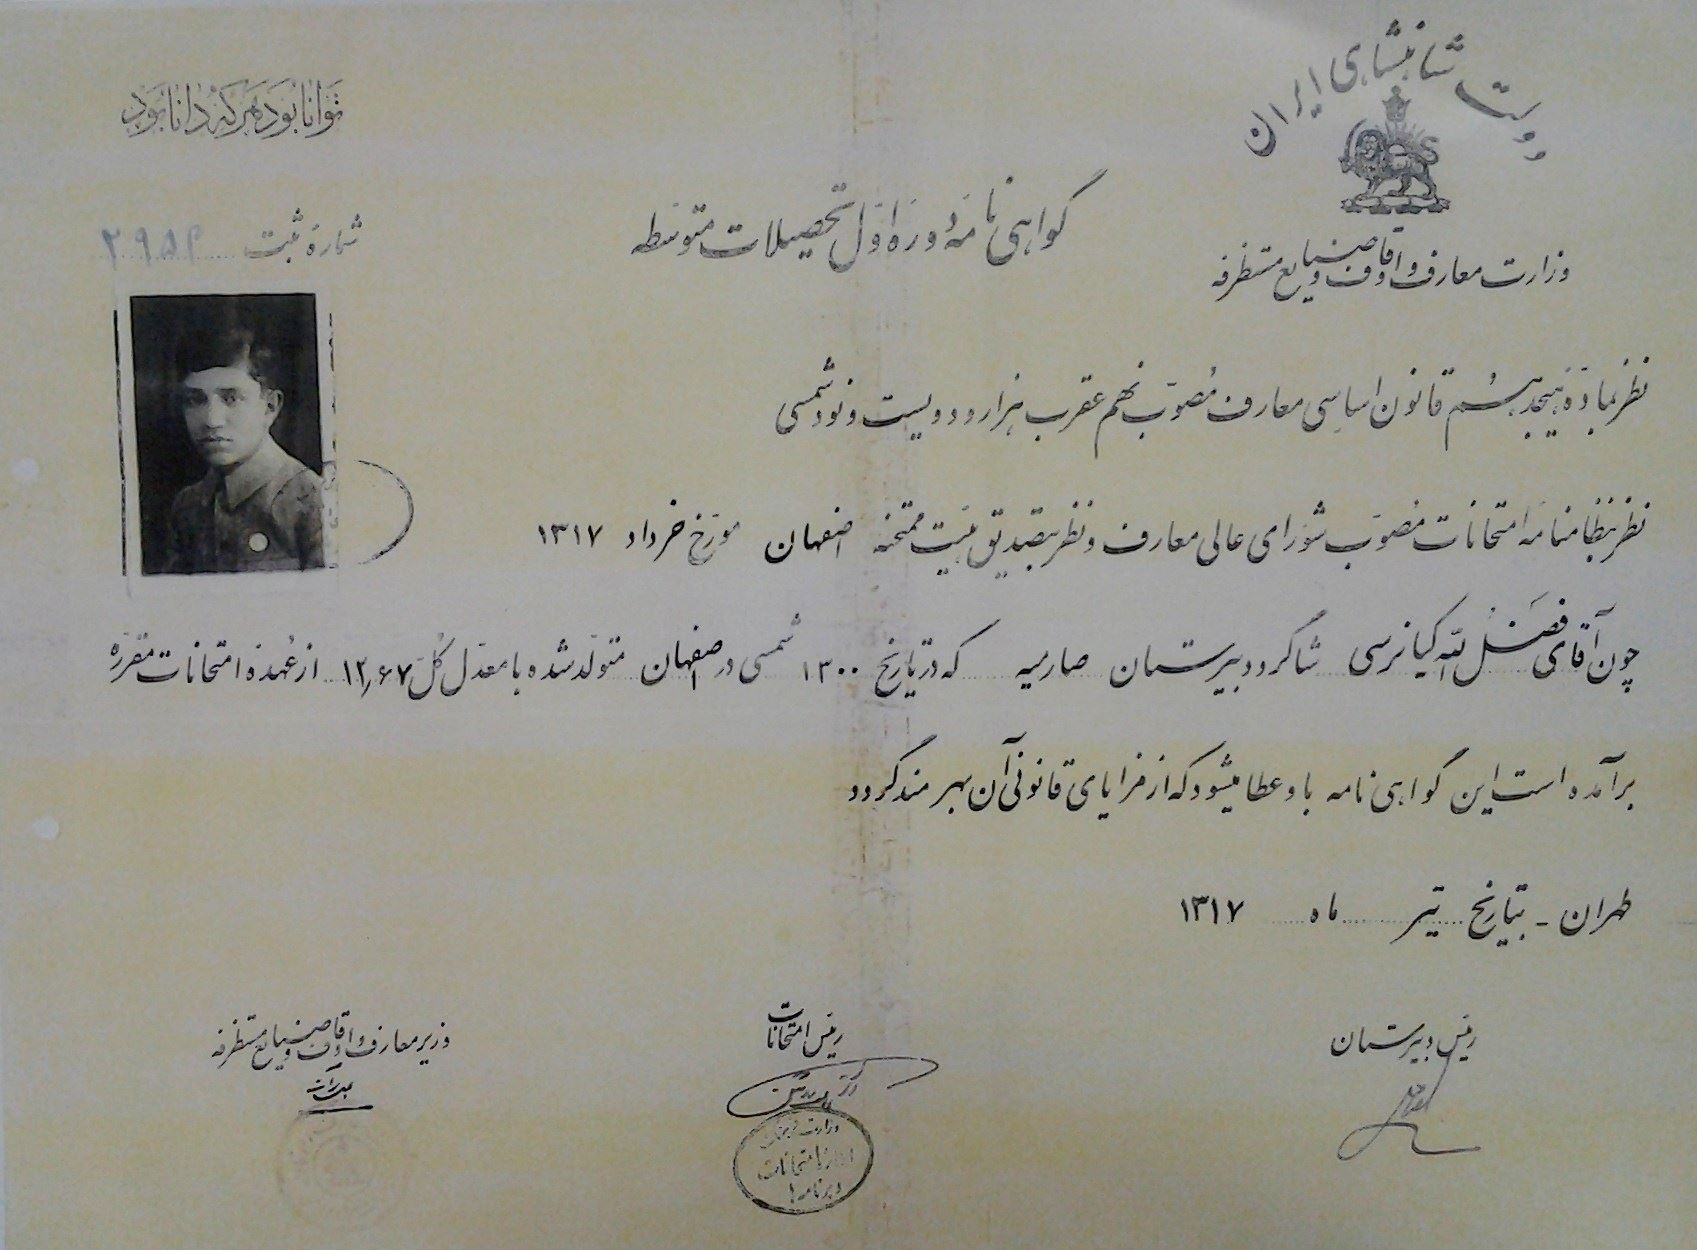 دولت شاهنشاهی ایران
وزارت معارف و اوقاف و صنایع مستظرفه
توانا بود هر که دانا بود
گواهی نامهٔ دورهٔ اول تحصیلات متوسطه
شمارهٔ ثبت ۲۹۵۴
نظر بمادهٔ هیجدهم قانون اساسی معارف مصوب نهم عقرب هزار و دویست و نود شمسی
نظر بنظامنامه امتحانات مصوب شورای عالی معارف و نظر بتصدیق هیئت ممتحنه اصفهان مورخ خرداد ۱۳۱۷
چون آقای فضل الله کیانرسی شاگرد دبیرستان صارمیه که در تاریخ ۱۳۰۰ شمسی در اصفهان متولد شده با معدل کل ۱۲٫۶۷ از عهدهٔ امتحانات مقرره
برآمده است این گواهی نامه باو عطا میشود که از مزایای قانونی آن بهرمند گردد
طهران - بتاریخ تیر ماه ۱۳۱۷
رئیس دبیرستان
رئیس امتحانات
وزیر معارف و اوقاف و صنایع مستظرفه
وزارت فرهنگ
اداره امتحانات
و برنامه ها